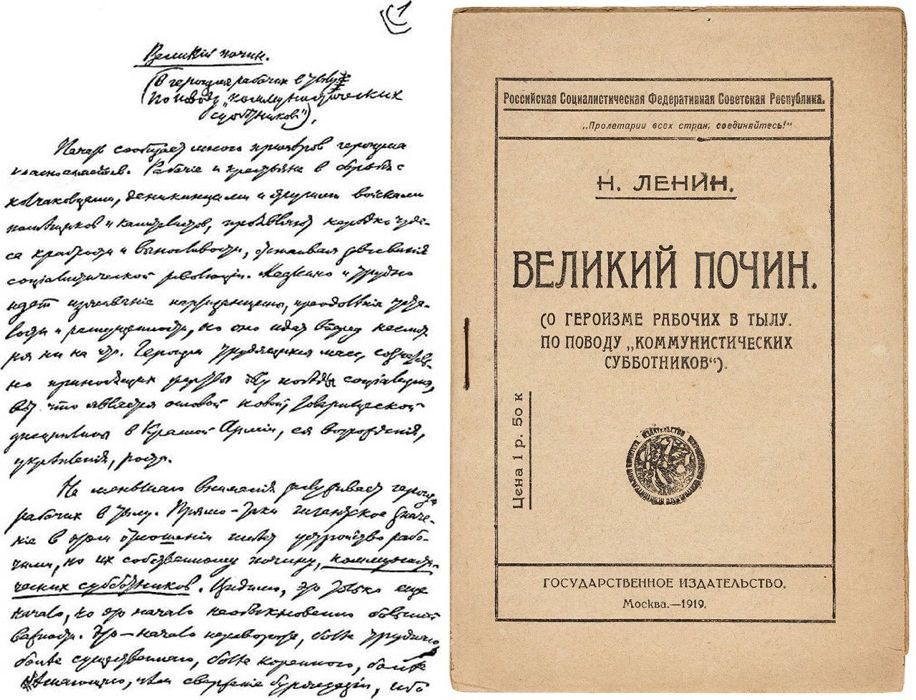 1
Великий почин.
(О героизме рабочих в тылу.
По поводу "коммунистических
субботников").
Печать сообщает много примеров героизма
красноармейцев. Рабочие и крестьяне в борьбе с
колчаковцами, деникинцами и другими войсками
помещиков и капиталистов, проявляют нередко чуде-
са храбрости и выносливости, отстаивая завоевания
социалистической революции. Медленно и трудно
идет изживание партизанщины, преодоление уста-
лости и распущенности, но оно идет вперед несмот-
ря ни на что. Героизм трудящихся масс, сознатель-
но приносящих жертвы делу победы социализма,
вот что является основой новой, товарищеской
дисциплины в Красной Армии, ея возрождения,
укрепления, роста.
Не меньшего внимания заслуживает героизм
рабочих в тылу. Прямо-таки гигантское значе-
ние в этом отношении имеет устройство рабо-
чими, по их собственному почину, коммунисти-
ческих субботников. Видимо, это только еще
начало, но это начало необыкновенно большой
важности. Это — начало переворота, более трудного,
более существенного, более коренного, более
решающего, чем свержение буржуазии, ибо
Российская Социалистическая Федеративная Советская Республика.
„Пролетарии всех стран, соединяйтесь!"
Н. ЛЕНИН.
ВЕЛИКИЙ ПОЧИН.
(О ГЕРОИЗМЕ РАБОЧИХ В ТЫЛУ.
ПО ПОВОДУ „КОММУНИСТИЧЕСКИХ
СУББОТНИКОВ").
Цена 1 р. 50 к
ГОСУДАРСТВЕННОЕ ИЗДАТЕЛЬСТВО.
Москва.—1919.